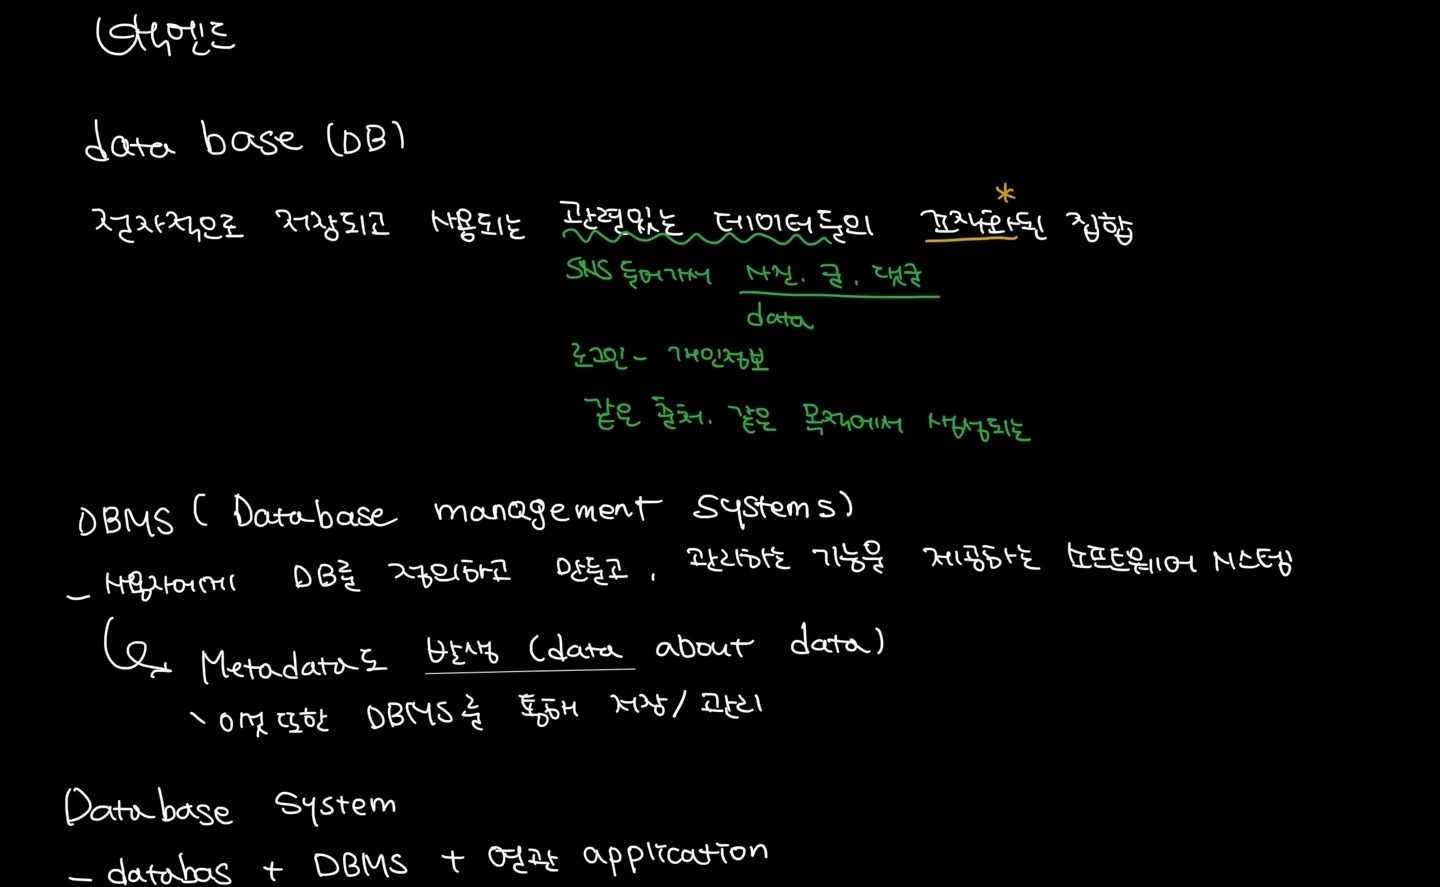 백엔드
data base (DB)
*
전자적으로 저장되고 사용되는 관련있는 데이터들의 조직화된 집합
SNS 들어가서 사진. 글. 댓글
data
로그인 - 개인정보
같은 출처. 같은 목적에서 생성되는
DBMS ( Database management systems)
- 사용자에게 DB를 정의하고 만들고, 관리하는 기능을 제공하는 소프트웨어 시스템
Metadata도 발생 (data about data)
이것 또한 DBMS를 통해 저장/관리
Database System
- databas + DBMS + 연관 application